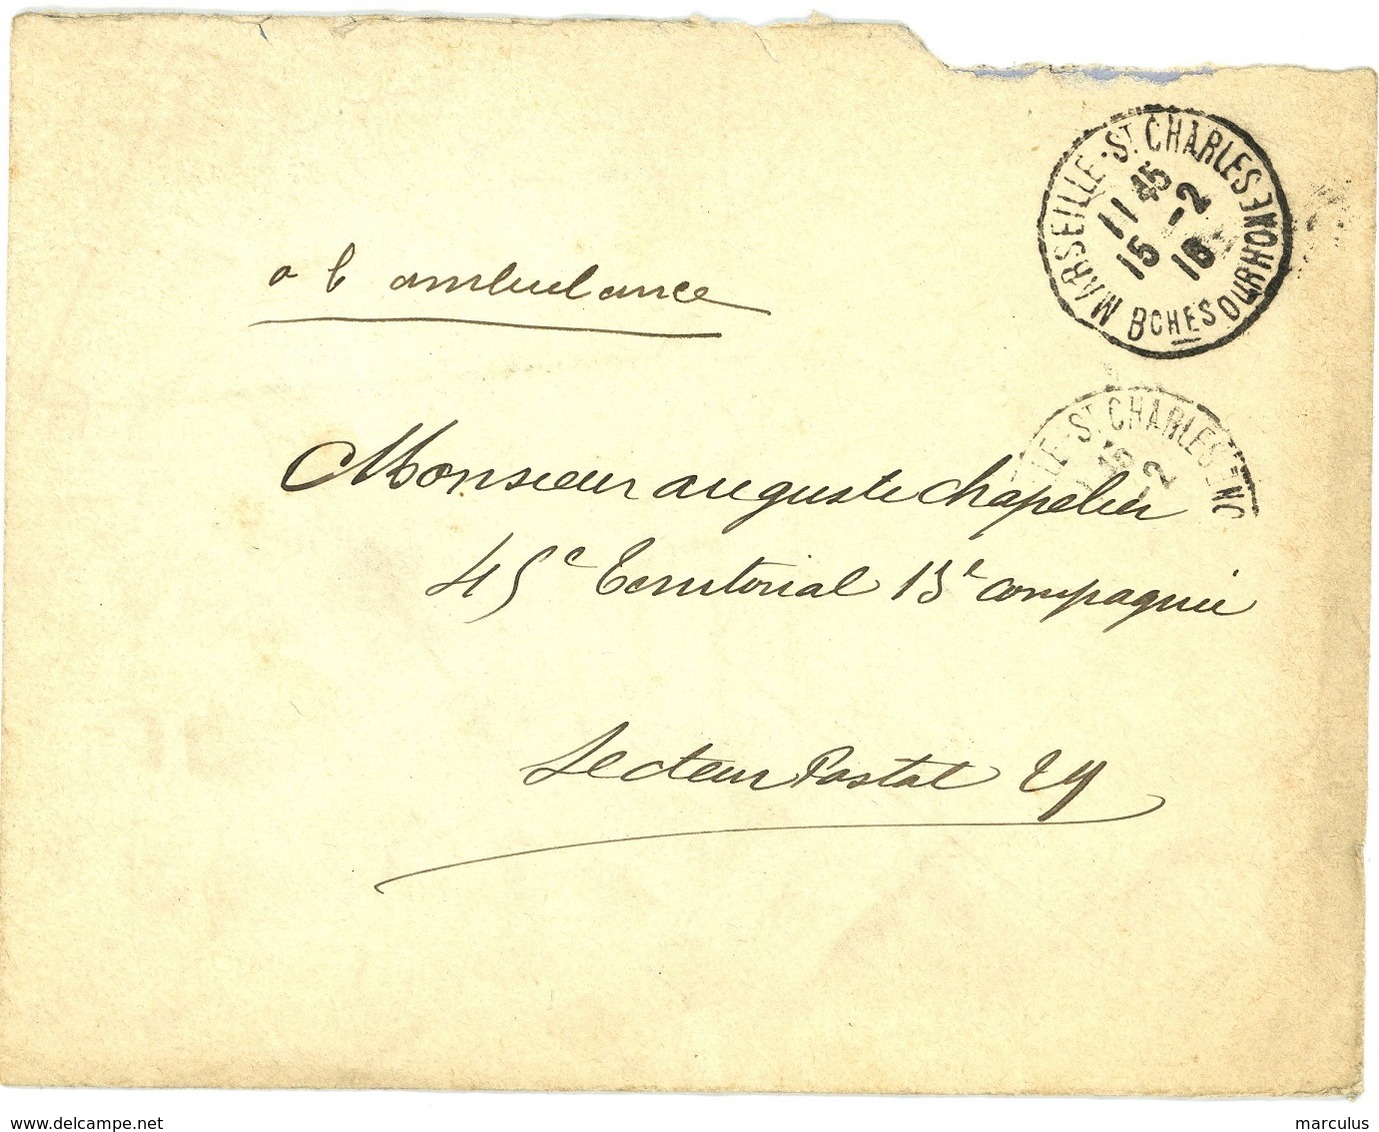 MARSEILLE-ST CHARLES
11 45
15 -2
16
BCHES DU RHONE
a l'ambulance
LLE-ST CHARLES
45
-2
Monsieur auguste chapelier
45e Territorial 13e compagnie
Secteur Postal 29
www.delcampe.net
marculus